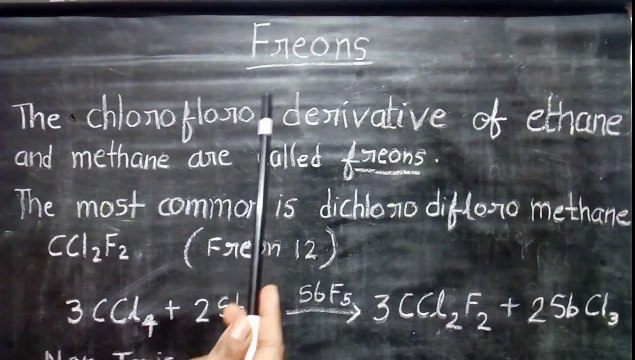 Freons
The chlorofloro derivative of ethane
and methane are called freons.
The most common is dichloro difloro methane
CCl₂F₂ (Freon 12)
3CCl₄ + 2Sb SbF₅ → 3CCl₂F₂ + 2SbCl₃